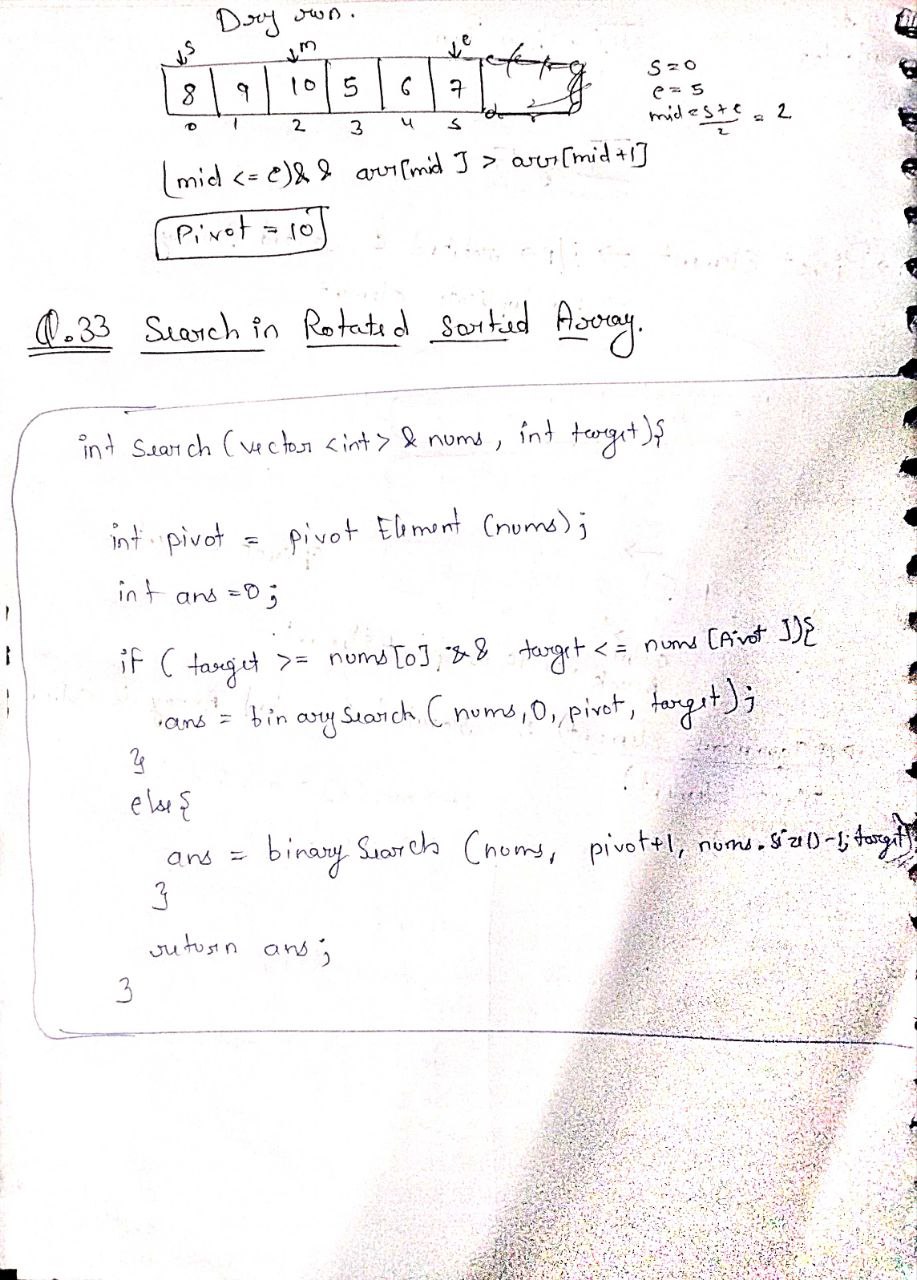 Dry run.
s m e
8 9 10 5 6 7
0 1 2 3 4 5
s=0
e=5
mid = s+e/2 = 2
(mid <= e) && arr[mid] > arr[mid+1]
Pivot = 10
Q.33 Search in Rotated Sorted Array.
int Search (vector <int> & nums, int target){
int pivot = pivot Element (nums);
int ans = 0;
if ( target >= nums[0] && target <= nums [Pivot ]){
ans = binary Search ( nums, 0, pivot, target);
}
else {
ans = binary Search (nums, pivot+1, nums.size()-1, target);
}
return ans;
}